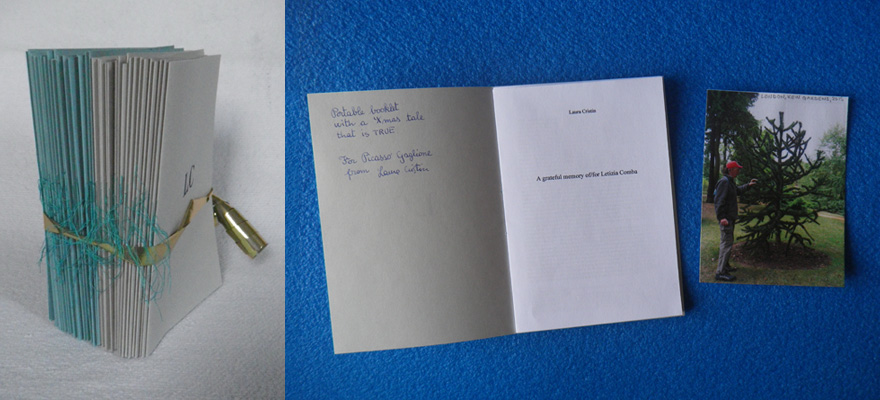 LC
Portable booklet
with a Xmas tale
that is TRUE
For Picasso Gaglione
from Laura
Laura Cristin
A grateful memory of/for Letizia Comba
LONDON, KEW GARDENS,